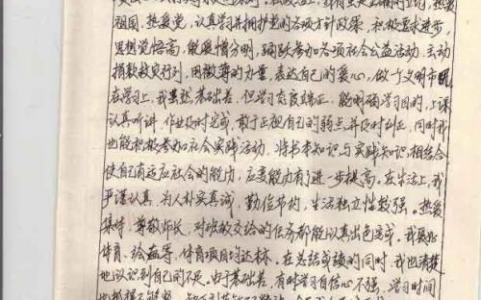 祖国,热爱党,认真学习并拥护党的各项方针政策,积极要求进步,
思想觉悟高,能爱憎分明,踊跃参加各项社会公益活动,主动
捐款救灾行列,用微薄的力量,表达自己的爱心,做个文明市民
在学习上,我虽然基础差,但学习态度端正,能明确学习目的,上课
认真听讲,作业及时完成,敢于正视自己的弱点并及时纠正,同时我
也能积极参加社会实践活动,将书本知识与实践知识相结合
使自己有适应社会的能力,应变能力有进一步提高,在生活上,我
严谨认真,为人朴实真诚,勤俭节约,生活独立性较强。热爱
集体,尊敬师长,对班级交给的任务都能认真出色完成。我
体育、绘画等,体育项目均达标。在总结成绩的同时,我也清楚
地认识到自己的不足。由于基础差,有时学习自信心不强,学习时间